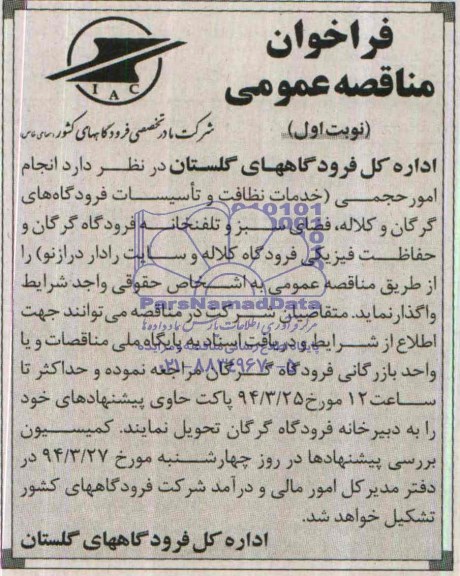 فراخوان
مناقصه عمومی
(نوبت اول)
IAC
شرکت مادر تخصصی فرودگاههای کشور (سهامی خاص)
اداره کل فرودگاههای گلستان در نظر دارد انجام
امور حجمی (خدمات نظافت و تأسیسات فرودگاه‌های
گرگان و کلاله، فضای سبز و تلفنخانه فرودگاه گرگان و
حفاظت فیزیکی فرودگاه کلاله و سایت رادار درازنو) را
از طریق مناقصه عمومی به اشخاص حقوقی واجد شرایط
واگذار نماید. متقاضیان شرکت در مناقصه می‌توانند جهت
اطلاع از شرایط و دریافت اسناد به پایگاه ملی مناقصات و یا
واحد بازرگانی فرودگاه گرگان مراجعه نموده و حداکثر تا
ساعت ۱۲ مورخ ۹۴/۳/۲۵ پاکت حاوی پیشنهادهای خود
را به دبیرخانه فرودگاه گرگان تحویل نمایند. کمیسیون
بررسی پیشنهادها در روز چهارشنبه مورخ ۹۴/۳/۲۷ در
دفتر مدیر کل امور مالی و درآمد شرکت فرودگاههای کشور
تشکیل خواهد شد.
اداره کل فرودگاههای گلستان
ParsNamadData